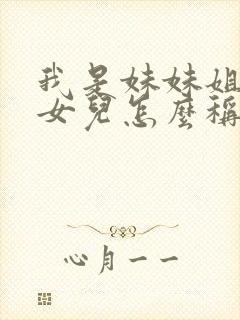 我是妹妹姐
女兒怎麼稱
心月一一